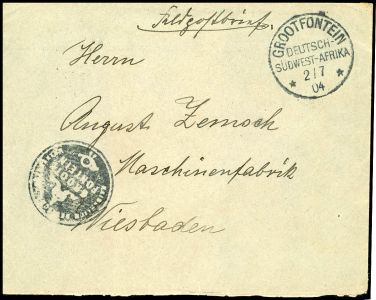 Feldpostbrief.
GROOTFONTEIN
DEUTSCH-
SÜDWEST-AFRIKA
2/7
04
Herrn
August Zemsch
Maschinenfabrik
Wiesbaden